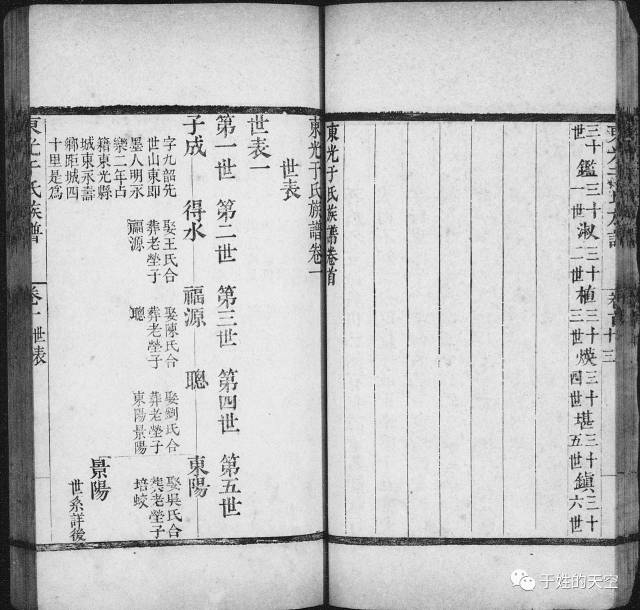 東光于氏族譜 卷首 十三
三十世鑑三十一世淑三十二世植三十三世煐三十四世堪三十五世鎮三十六世
東光于氏族譜卷首
東光于氏族譜卷一
世表
世表一
第一世 第二世 第三世 第四世 第五世
子成 得水 福源 聰 東陽
字九韶先
世山東即
墨人明永
樂二年占
籍東光縣
城東永壽
鄉距城四
十里是為
娶王氏合
葬老塋子
福源
娶陳氏合
葬老塋子
聰
娶劉氏合
葬老塋子
東陽景陽
娶吳氏合
葬老塋子
培蛟
景陽
世系詳後
東光于氏族譜 卷一 世表
于姓的天空